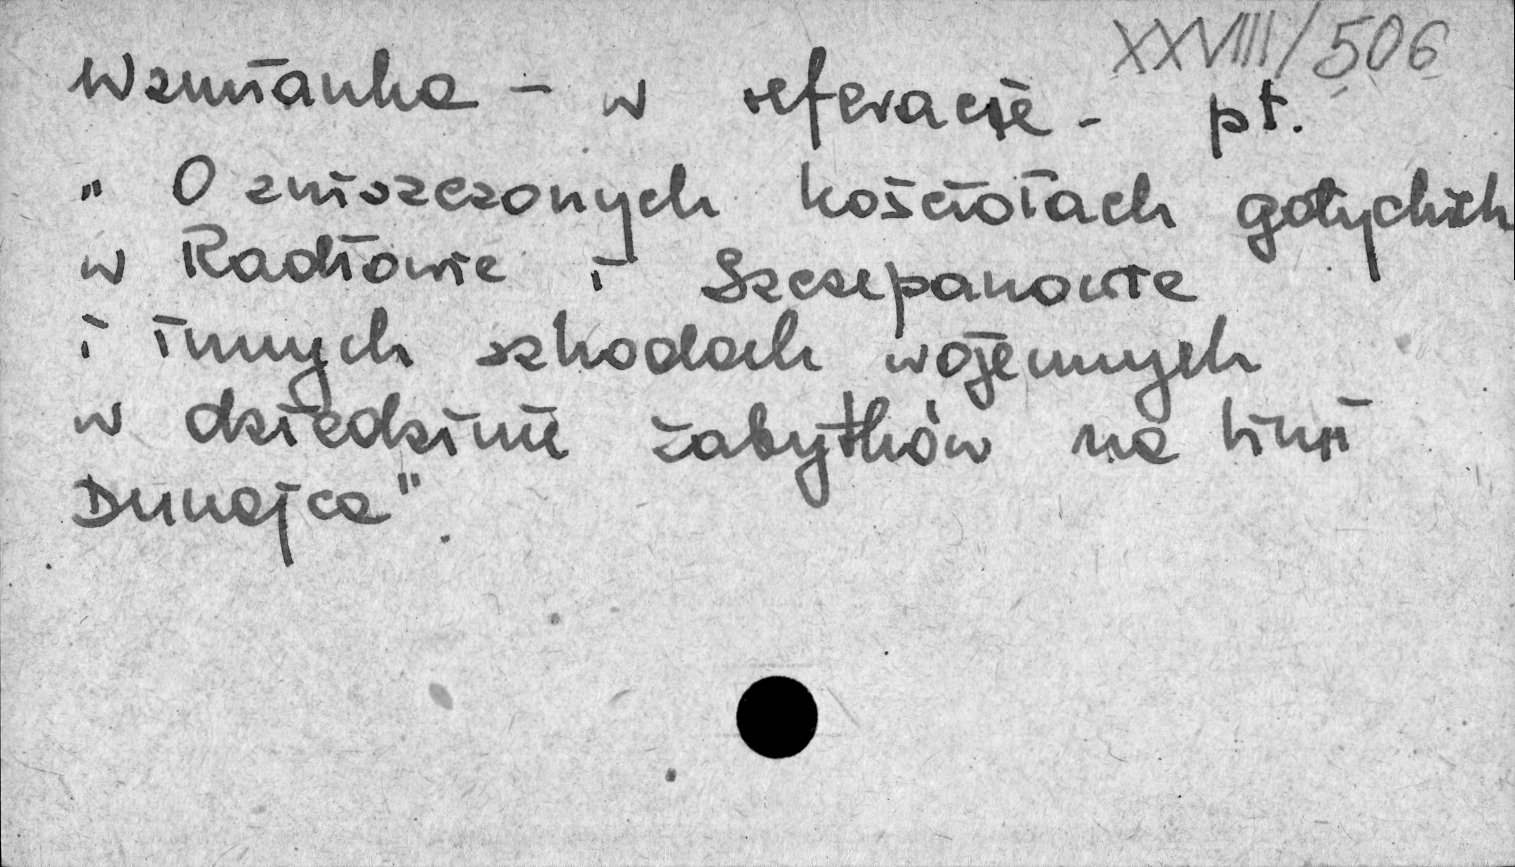 XXVIII/506
Wzmianka - w referacie - pt.
" O zniszczonych kościołach gotyckich
w Radłowie i Szczepanowie
i innych szkodach wojennych
w dziedzinie zabytków na linii
Dunajca".